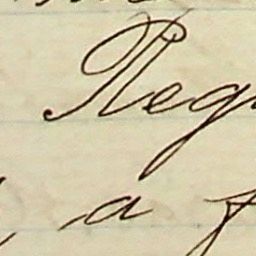 Reg
, a f